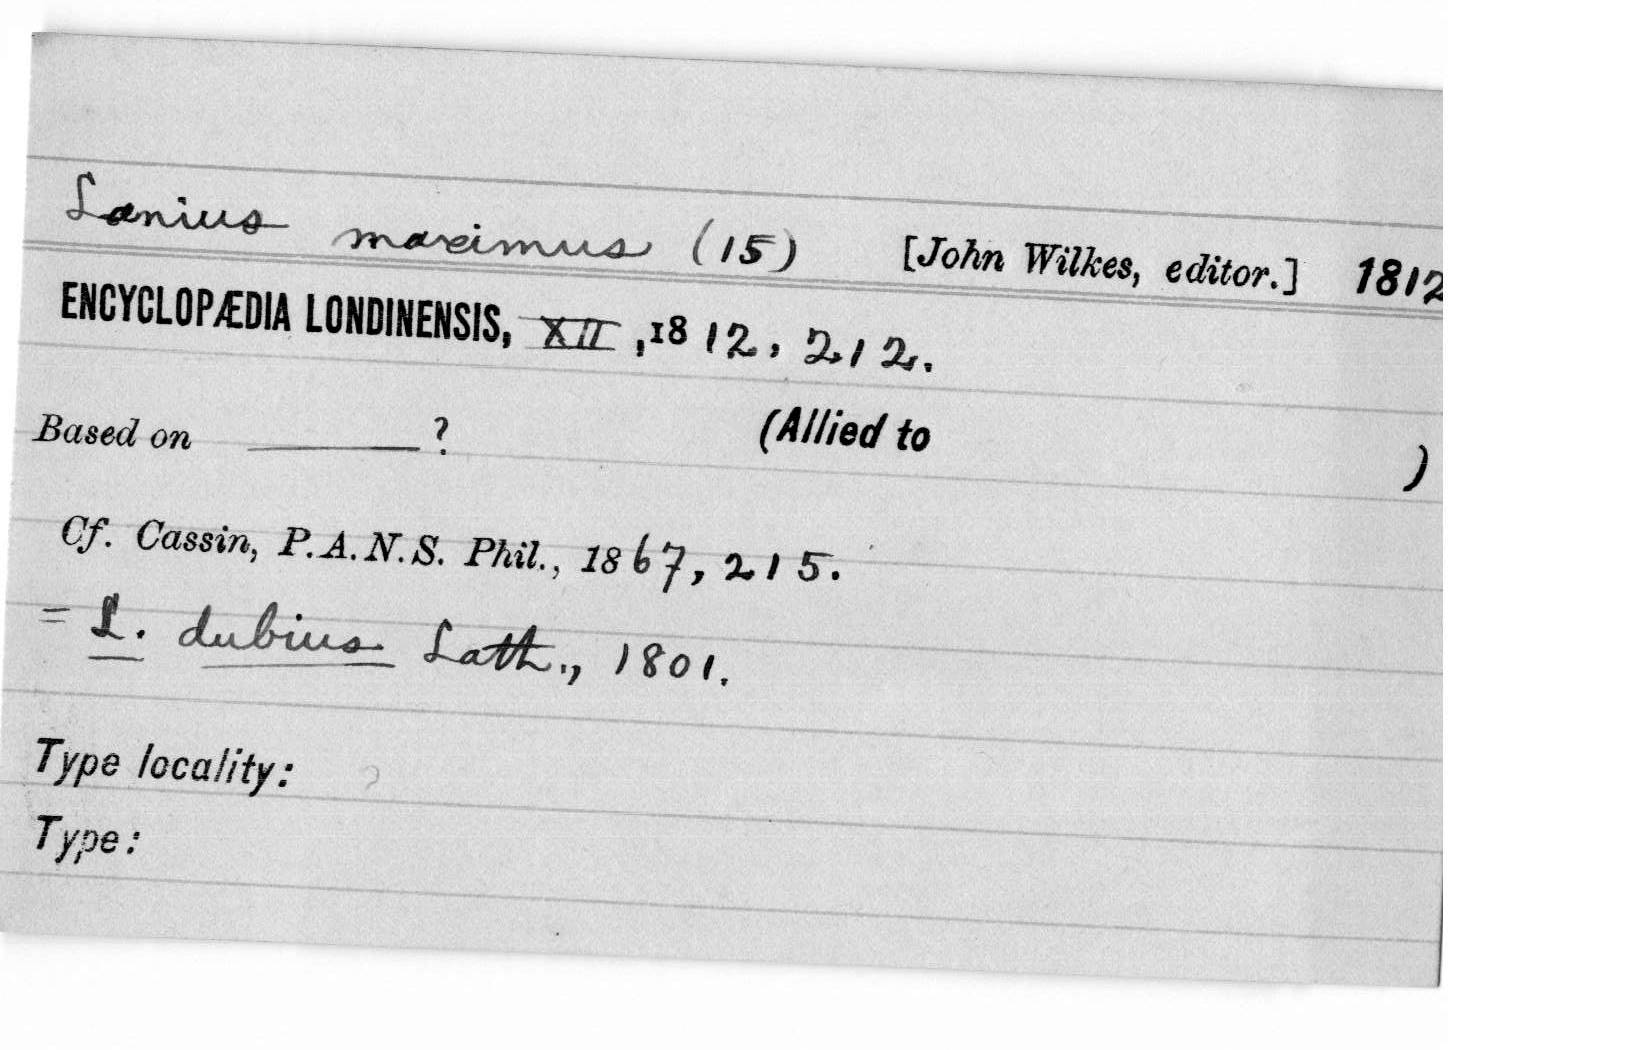 Lanius maximus (15) [John Wilkes, editor.] 1812
ENCYCLOPÆDIA LONDINENSIS, XII, 1812, 212.
Based on ______? (Allied to )
Cf. Cassin, P.A.N.S. Phil., 1867, 215.
= L. dubius Lath., 1801.
Type locality: ?
Type: